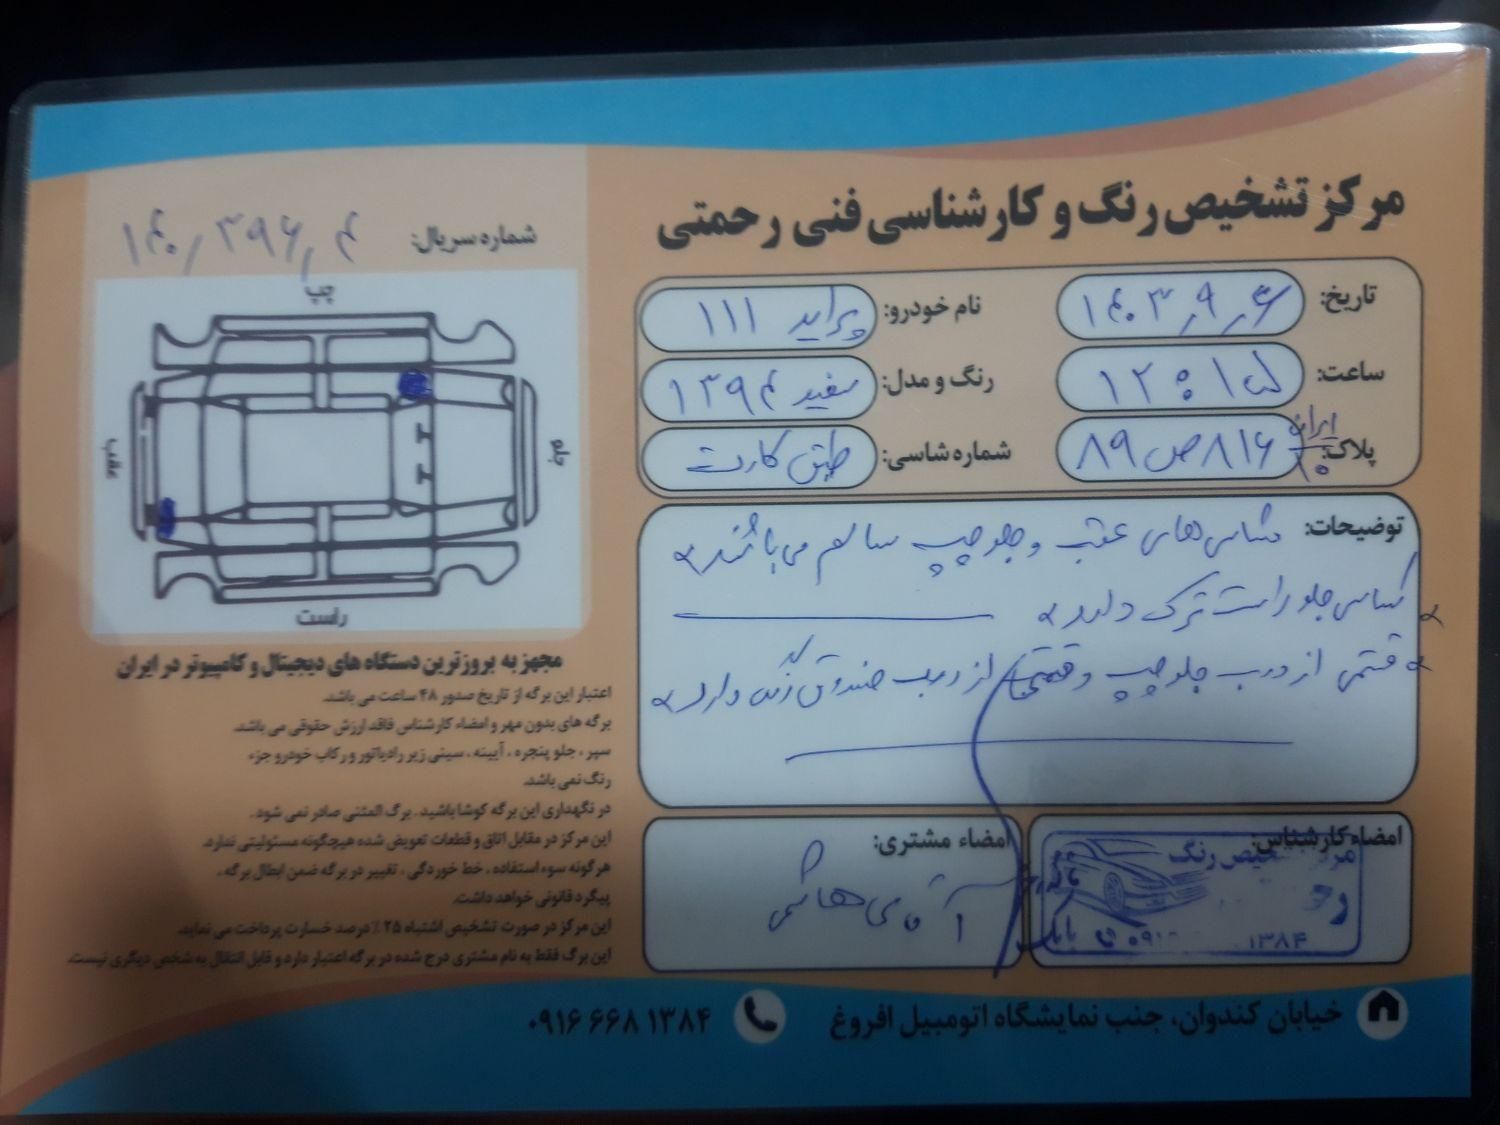 مرکز تشخیص رنگ و کارشناسی فنی رحمتی
تاریخ: ۱۴۰۳٫۹٫۶
نام خودرو: پراید ۱۱۱
ساعت: ۱۲:۱۵
رنگ و مدل: سفید ۱۳۹۴
پلاک: ۸۹ص۸۱۶ ایران
شماره شاسی: طبق کارت
توضیحات: شاسی‌های عقب و جلو چپ سالم می‌باشند
شاسی جلو راست ترک دارد
قسمتی از درب جلو چپ و قسمتی از درب صندوق رنگ دارد
امضاء کارشناس:
تشخیص رنگ
۱۳۸۴
امضاء مشتری:
آقای هاشمی
شماره سریال: ۱۴۰٫۳۹۶٫۴
چپ
جلو
عقب
راست
مجهز به بروزترین دستگاه های دیجیتال و کامپیوتر در ایران
اعتبار این برگه از تاریخ صدور ۴۸ ساعت می باشد.
برگه های بدون مهر و امضاء کارشناس فاقد ارزش حقوقی می باشد.
سپر ، جلو پنجره ، آیینه ، سینی زیر رادیاتور و رکاب خودرو جزء
رنگ نمی باشد.
در نگهداری این برگه کوشا باشید . برگ المثنی صادر نمی شود .
این مرکز در مقابل اتاق و قطعات تعویض شده هیچگونه مسئولیتی ندارد.
هرگونه سوء استفاده ، خط خوردگی ، تغییر در برگه ضمن ابطال برگه ،
پیگرد قانونی خواهد داشت.
این مرکز در صورت تشخیص اشتباه ۲۵ ٪ درصد خسارت پرداخت می نماید.
این برگ فقط به نام مشتری درج شده در برگه اعتبار دارد و قابل انتقال به شخص دیگری نیست.
خیابان کندوان، جنب نمایشگاه اتومبیل افروغ
۰۹۱۶ ۶۶۸ ۱۳۸۴